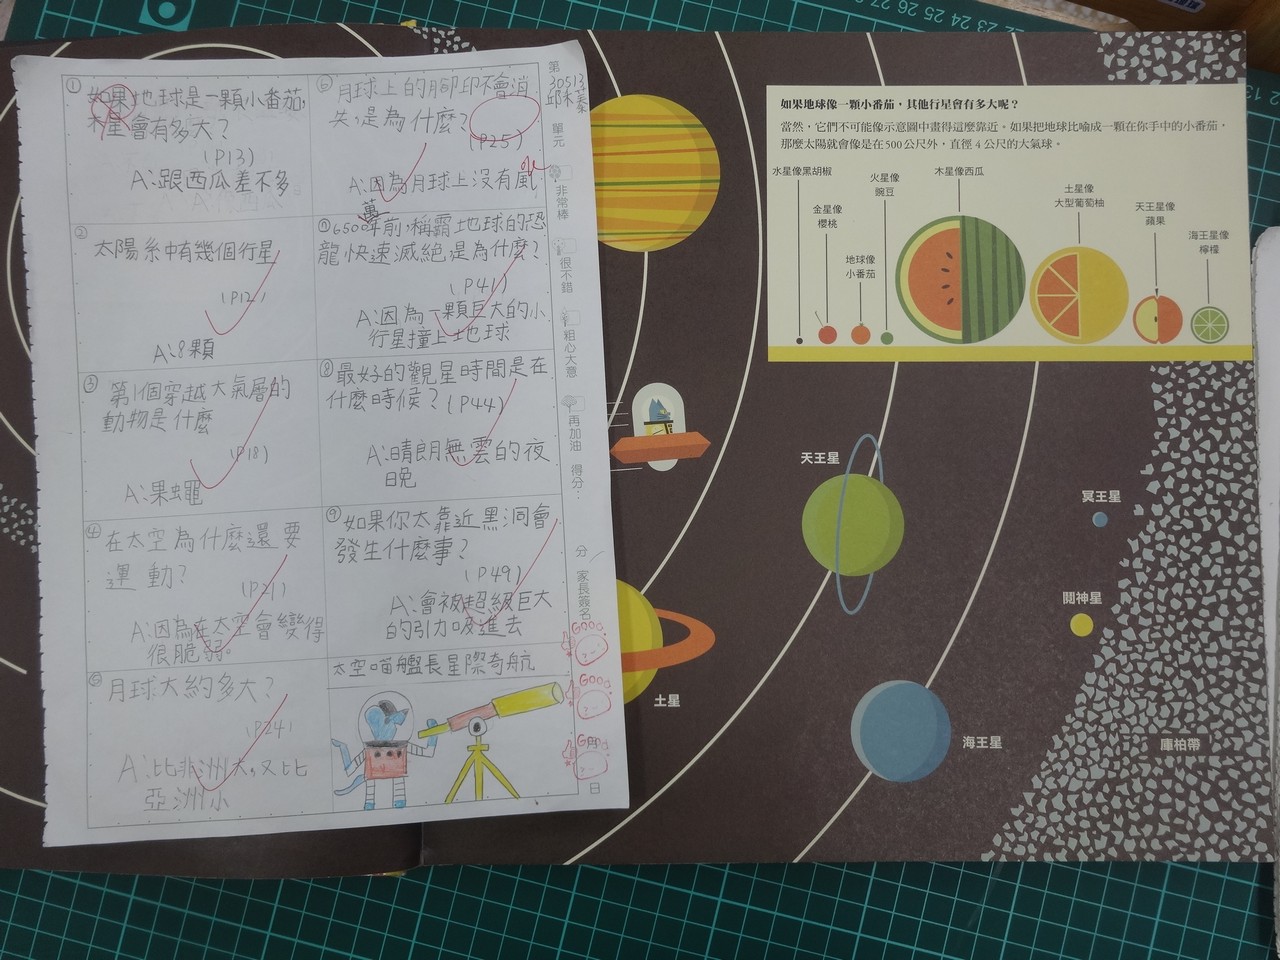 ①如果地球是一顆小番茄,
木星會有多大?
(P13)
A:跟西瓜差不多
②
太陽系中有幾個行星
(P12)
A:8顆
③第1個穿越大氣層的
動物是什麼
(P18)
A:果蠅
④
在太空為什麼還要
運動?
(P21)
A:因為在太空會變得
很脆弱。
⑤月球大約多大?
(P24)
A:比非洲大,又比
亞洲小
⑥月球上的腳印不會消
失,是為什麼?
(P25)
A:因為月球上沒有風
萬
⑦6500年前,稱霸地球的恐
龍快速滅絕是為什麼?
(P41)
A:因為一顆巨大的小
行星撞上地球
⑧最好的觀星時間是在
什麼時候?(P44)
A:晴朗無雲的夜
晚
⑨如果你太靠近黑洞會
發生什麼事?
(P49)
A:會被超級巨大
的引力吸進去
太空喵艦長星際奇航
第
30513
單元
非常棒
很不錯
粗心大意
再加油
得分:
分
家長簽名
日
GOOD
GOOD
GOOD
如果地球像一顆小番茄,其他行星會有多大呢?
當然,它們不可能像示意圖中畫得這麼靠近。如果把地球比喻成一顆在你手中的小番茄,
那麼太陽就會像是在500公尺外,直徑4公尺的大氣球。
水星像黑胡椒
金星像
櫻桃
地球像
小番茄
火星像
豌豆
木星像西瓜
土星像
大型葡萄柚
天王星像
蘋果
海王星像
檸檬
天王星
冥王星
鬩神星
土星
海王星
庫柏帶